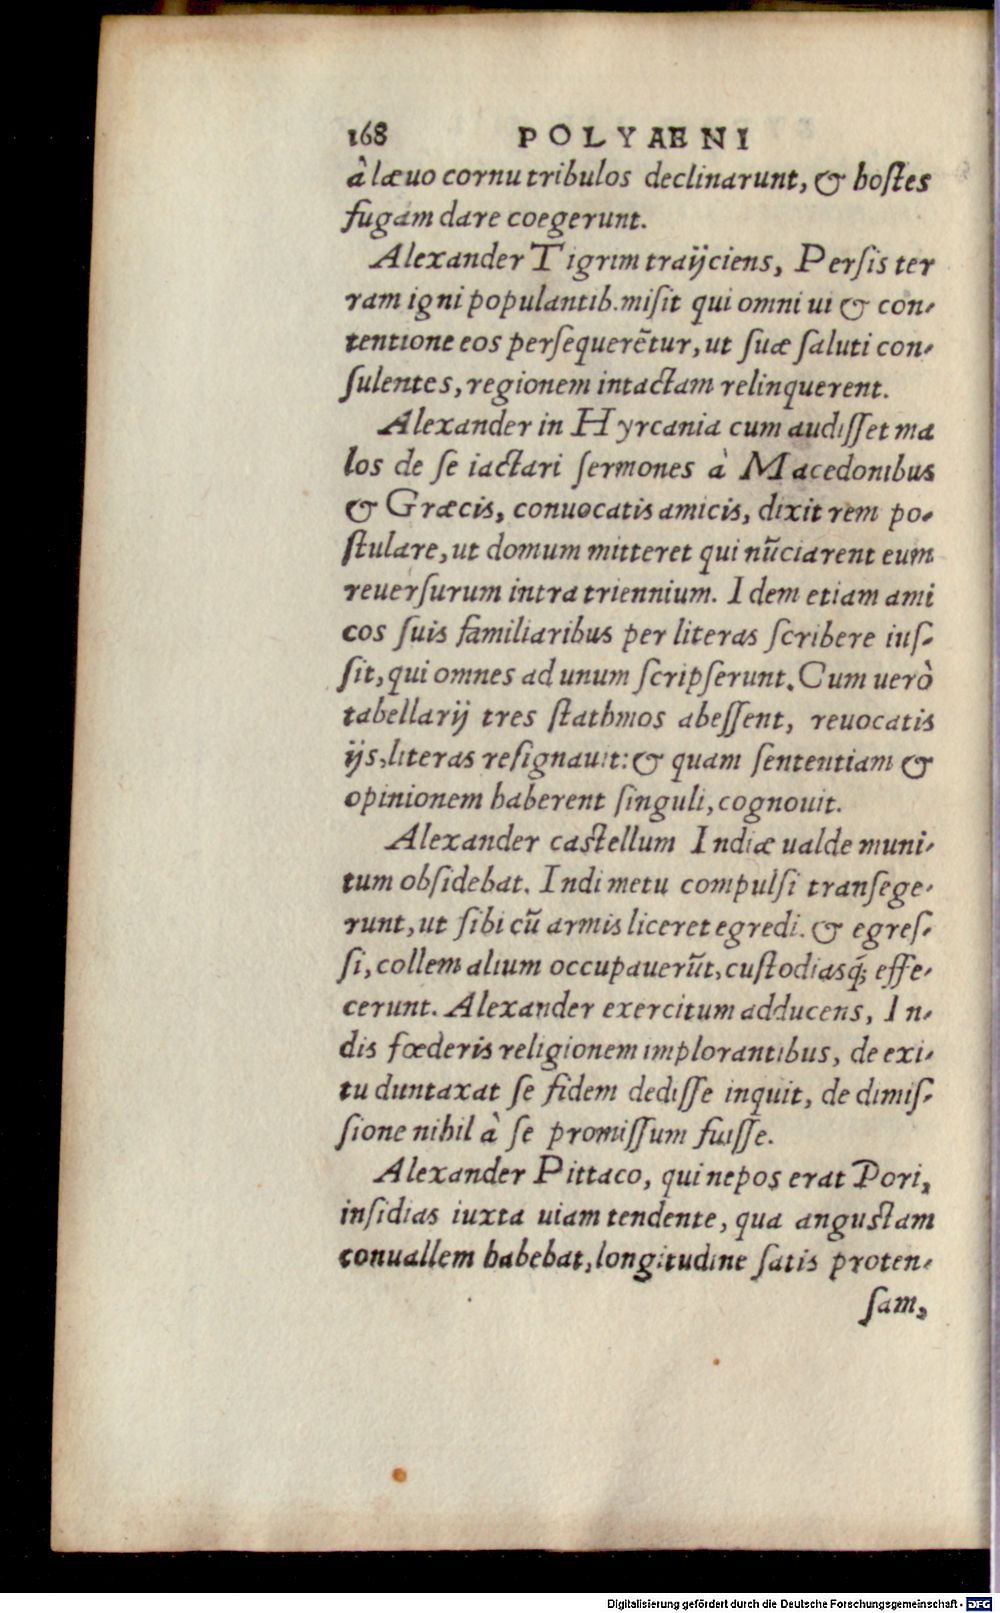 168 POLYAENI
à læuo cornu tribulos declinarunt, & hoſtes
fugam dare coegerunt.
Alexander Tigrim traijciens, Perſis ter
ram igni populantib. miſit qui omni ui & con-
tentione eos perſequerẽtur, ut ſuæ ſaluti con-
ſulentes, regionem intactam relinquerent.
Alexander in Hyrcania cum audiſſet ma
los de ſe iactari ſermones à Macedonibus
& Græcis, conuocatis amicis, dixit rem po-
ſtulare, ut domum mitteret qui nũciarent eum
reuerſurum intra triennium. Idem etiam ami
cos ſuis familiaribus per literas ſcribere iuſ-
ſit, qui omnes ad unum ſcripſerunt. Cum uerò
tabellarij tres ſtathmos abeſſent, reuocatis
ijs, literas reſignauit: & quam ſententiam &
opinionem haberent ſinguli, cognouit.
Alexander caſtellum Indiæ ualde muni-
tum obſidebat. Indi metu compulſi tranſege-
runt, ut ſibi cũ armis liceret egredi. & egreſ-
ſi, collem alium occupauerũt, cuſtodiasq́; effe-
cerunt. Alexander exercitum adducens, In-
dis fœderis religionem implorantibus, de exi-
tu duntaxat ſe fidem dediſſe inquit, de dimiſ-
ſione nihil à ſe promiſſum fuiſſe.
Alexander Pittaco, qui nepos erat Pori,
inſidias iuxta uiam tendente, qua anguſtam
conuallem habebat, longitudine ſatis proten-
ſam,
Digitalisierung gefördert durch die Deutsche Forschungsgemeinschaft - DFG